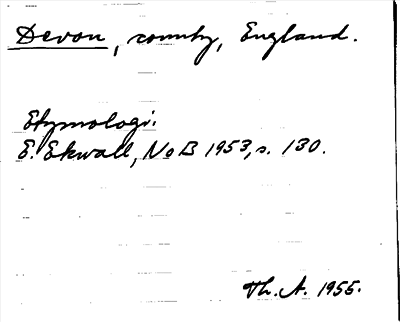 Devon, county, England.
Etymologi:
E. Ekwall, NoB 1953, s. 130.
Th. A. 1955.